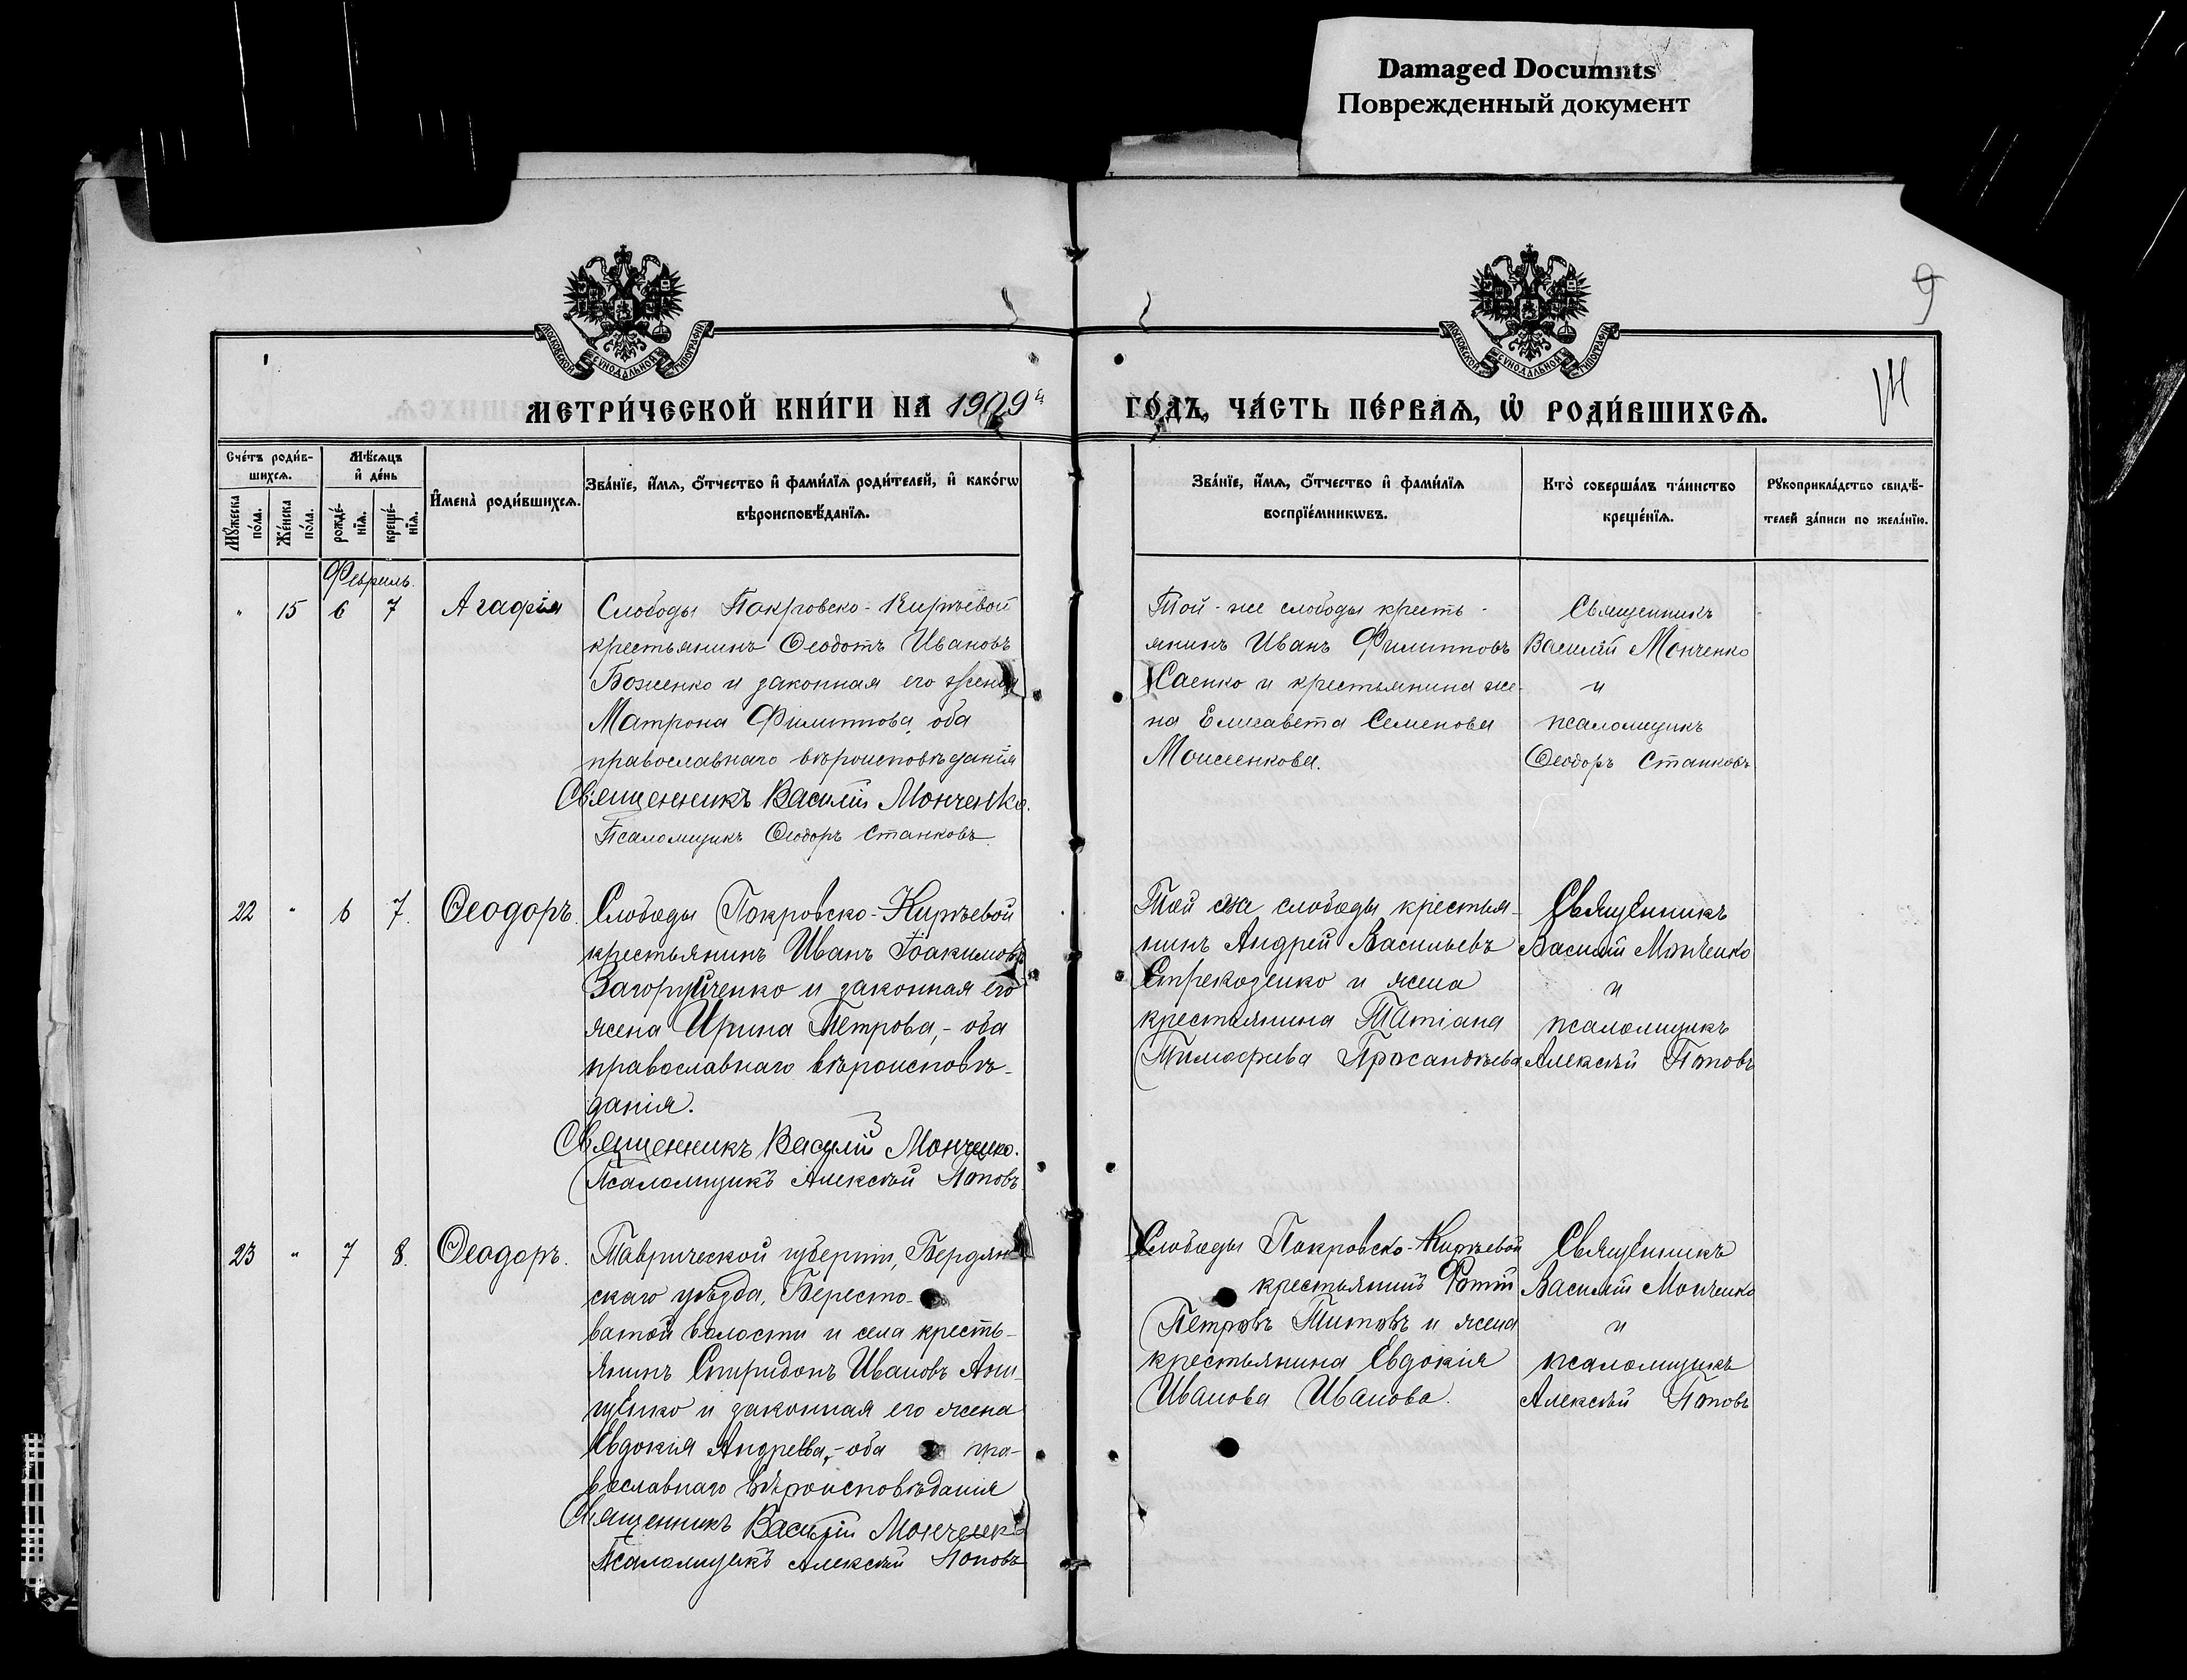 Damaged Documnts
Поврежденный документ
9
МОСКОВСКОЙ СѴНОДАЛЬНОЙ ТИПОГРАФІИ
МОСКОВСКОЙ СѴНОДАЛЬНОЙ ТИПОГРАФІИ
МЕТРИ́ЧЕСКОЙ КНИ́ГИ НА 1909й
ГО́ДЪ, ЧА́СТЬ ПЕ́РВАѦ, Ѡ҆ РОДИ́ВШИХСѦ.
Сче́тъ роди́в-
шихсѧ.
Мѣ́сѧцъ
и҆ де́нь
Мꙋ́жеска
по́ла.
Же́нска
по́ла.
рожде́-
нїѧ.
креще́-
нїѧ.
И҆мена̀ роди́вшихсѧ.
Зва́нїе, и҆́мѧ, ѻ҆́тчество и҆ фами́лїѧ роди́телей, и҆ како́гѡ
вѣроисповѣ́данїѧ.
Зва́нїе, и҆́мѧ, ѻ҆́тчество и҆ фами́лїѧ
воспрїе́мникѡвъ.
Кто̀ соверша́лъ та́инство
креще́нїѧ.
Рꙋкоприкла́дство свидѣ́-
телей за́писи по жела́нїю.
Февраль.
" 15 6 7 Агафія
Слободы Покровско-Кирѣевой
крестьянинъ Ѳеодотъ Ивановъ
Боженко и законная его жена
Матрона Филиппова, оба
православнаго вѣроисповѣданія
Священникъ Василій Мончёнко.
Псаломщикъ Ѳеодоръ Станковъ.
Той-же слободы кресть-
янинъ Иванъ Филипповъ
Саенко и крестьянина же-
на Елисавета Семенова
Моисеенкова.
Священникъ
Василій Мончёнко
и
псаломщикъ
Ѳеодоръ Станковъ
22 " 6 7. Ѳеодоръ.
Слободы Покровско-Кирѣевой
крестьянинъ Иванъ Іоакимовъ
Загоруйченко и законная его
жена Ирина Петрова,- оба
православнаго вѣроисповѣ-
данія.
Священникъ Василій Мончёнко.
Псаломщикъ Алексѣй Поповъ
Той же слободы крестья-
нинъ Андрей Васильевъ
Стрекозенко и жена
крестьянина Татіана
Тимофеева
Священникъ
Василій Мончёнко
и
псаломщикъ
Алексѣй Поповъ
23 " 7 8. Ѳеодоръ.
Таврической губерніи, Бердян-
скаго уѣзда, Бересто-
ватой волости и села кресть-
янинъ Спиридонъ Ивановъ Они-
щенко и законная его жена
Евдокія Андреева,- оба пра-
вославнаго вѣроисповѣданія
Священникъ Василій Мончёнко
Псаломщикъ Алексѣй Поповъ
Слободы Покровско-Кирѣевой
крестьянинъ Фотій
Петровъ Титовъ и жена
крестьянина Евдокія
Иванова Иванова.
Священникъ
Василій Мончёнко
и
псаломщикъ
Алексѣй Поповъ